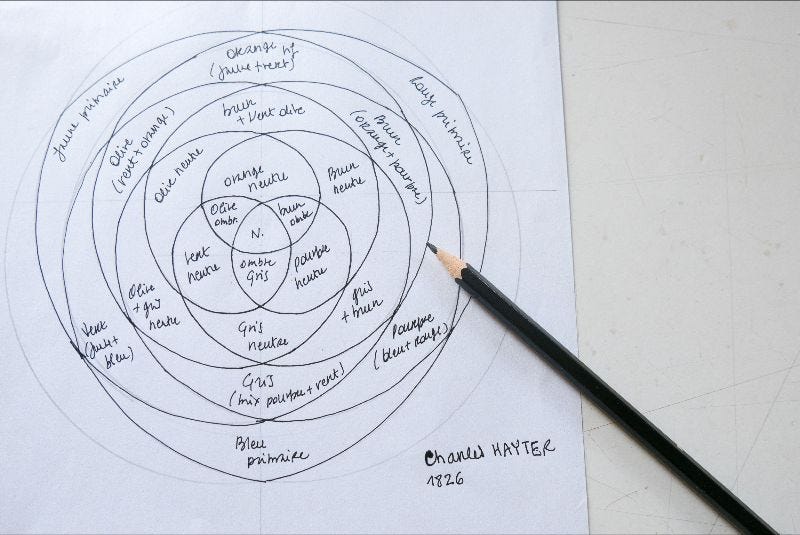 Orange
(jaune + vert)
Jaune primaire
Rouge primaire
brun
+ Vert olive
Olive
(vert + orange)
Brun
(orange + pourpre)
Olive neutre
orange
neutre
Brun
neutre
Olive
ombr.
brun
ombre
N.
vert
neutre
ombre
Gris
pourpre
neutre
Olive
+ gris
neutre
gris
+ brun
Gris
neutre
Vert
(jaune +
bleu)
Pourpre
(bleu + rouge)
Gris
(mix pourpre + vert)
Bleu
primaire
Charles HAYTER
1826